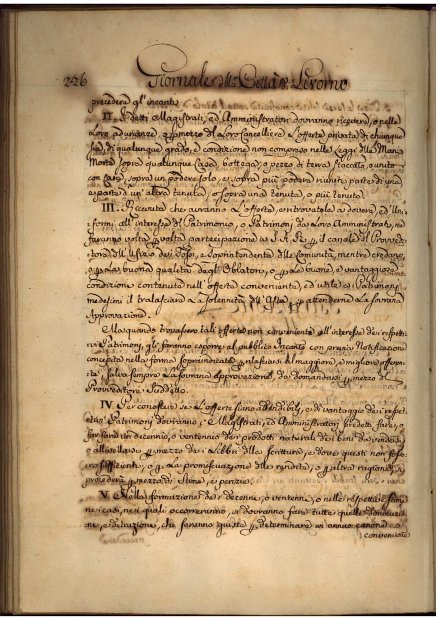 226 Giornale della Città di Livorno
procedere agl'incanti
II. I detti Magistrati, ed Amministratori dovranno ricevere, o nelle
Loro adunanze, o p mezzo di Loro Cancelliere L'offerte private di chiunque
sia, di qualunque grado, e condizione non compreso nella Legge della Mano
Morta sopra qualunque Casa, bottega, o pezzo di terra staccato, o unito
con Casa, sopra un podere solo, e sopra più poderi riuniti, parte di una
e parte d'un'altra tenuta, o sopra una tenuta, o più tenute.
III. Ricevuta che avranno L'offerta, e ritrovatela a dovere, ed Uni
formi all'interesse del Patrimonio, o Patrimoni da Loro Amministrati, ne
faranno volta p volta partecipazione a S. A. R. p il canale del Provvedi
tore dell'Ufizio dei Fossi, e Soprintendente delle Comunità, mentre credano,
o p La buona qualità degli Oblatori, o p Le buone, e vantaggiose
condizioni contenute nell'offerta conveniente, ed utile ai Patrimoni
medesimi il tralasciare La solennità dell'Asta, p attenderne La Sovrana
Approvazione.
Ma quando trovassero tali offerte non convenienti all'interesse dei respetti
vi Patrimoni, gli faranno esporre al pubblico Incanto con previe Notificazioni
concepite nella forma sopraindicata p rilasciarsi al maggiore, e migliore offeren
te, salva sempre La Sovrana Approvazione, da domandarsi p mezzo del
Provveditore Suddetto.
IV. Per conoscere se L'offerte siano attendibili, e di vantaggio dei respet
tivi Patrimoni dovranno i Magistrati, ed Amministratori predetti fare, o
far fare un decennio, o ventennio dei prodotti naturali dei beni da vendersi,
o allivellarsi p mezzo dei Libbri delle scritture, e dove questi non fosse
ro sufficienti, o p La promiscuazione delle rendite, o p altra ragione, si
procederà p mezzo di Stime, e perizie.
V. Nella formazione dei decenni, o ventenni, o nelle respettive stime
nei casi, nei quali occorreranno, si dovranno fare tutte quelle diminuzio
ni, e detrazioni, che saranno giuste p determinare un annuo canone
conveniente